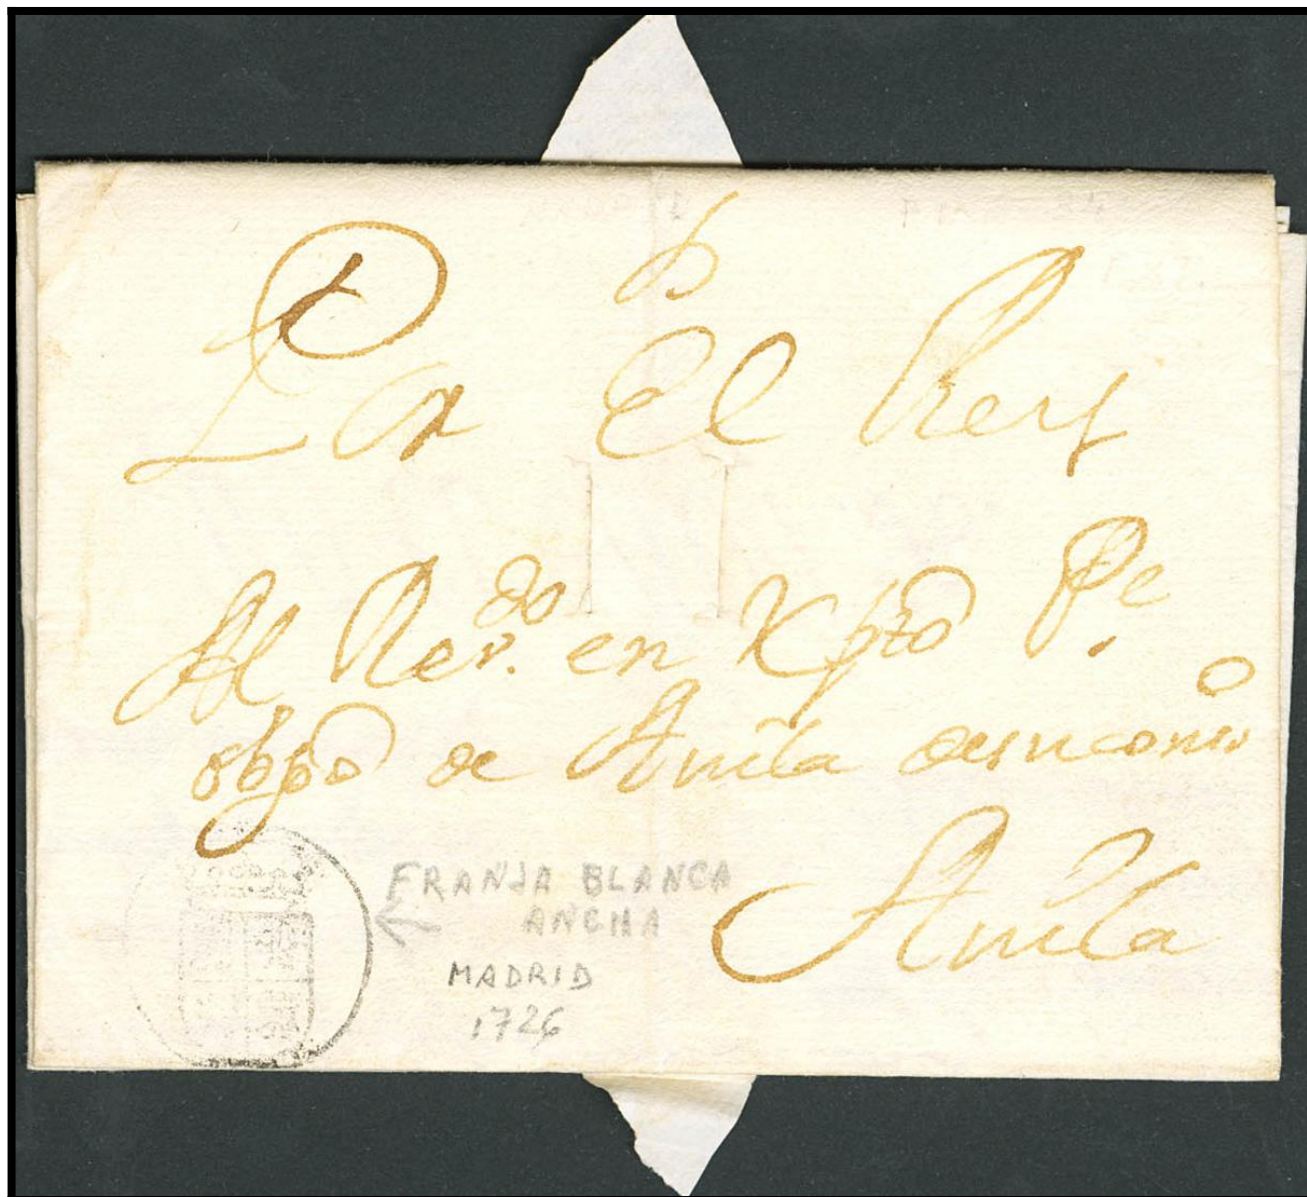 Por El Rey
Al Rev.do en Xpto Pe.
obpo de Avila de su conso
Avila
FRANJA BLANCA
ANCHA
MADRID
1726